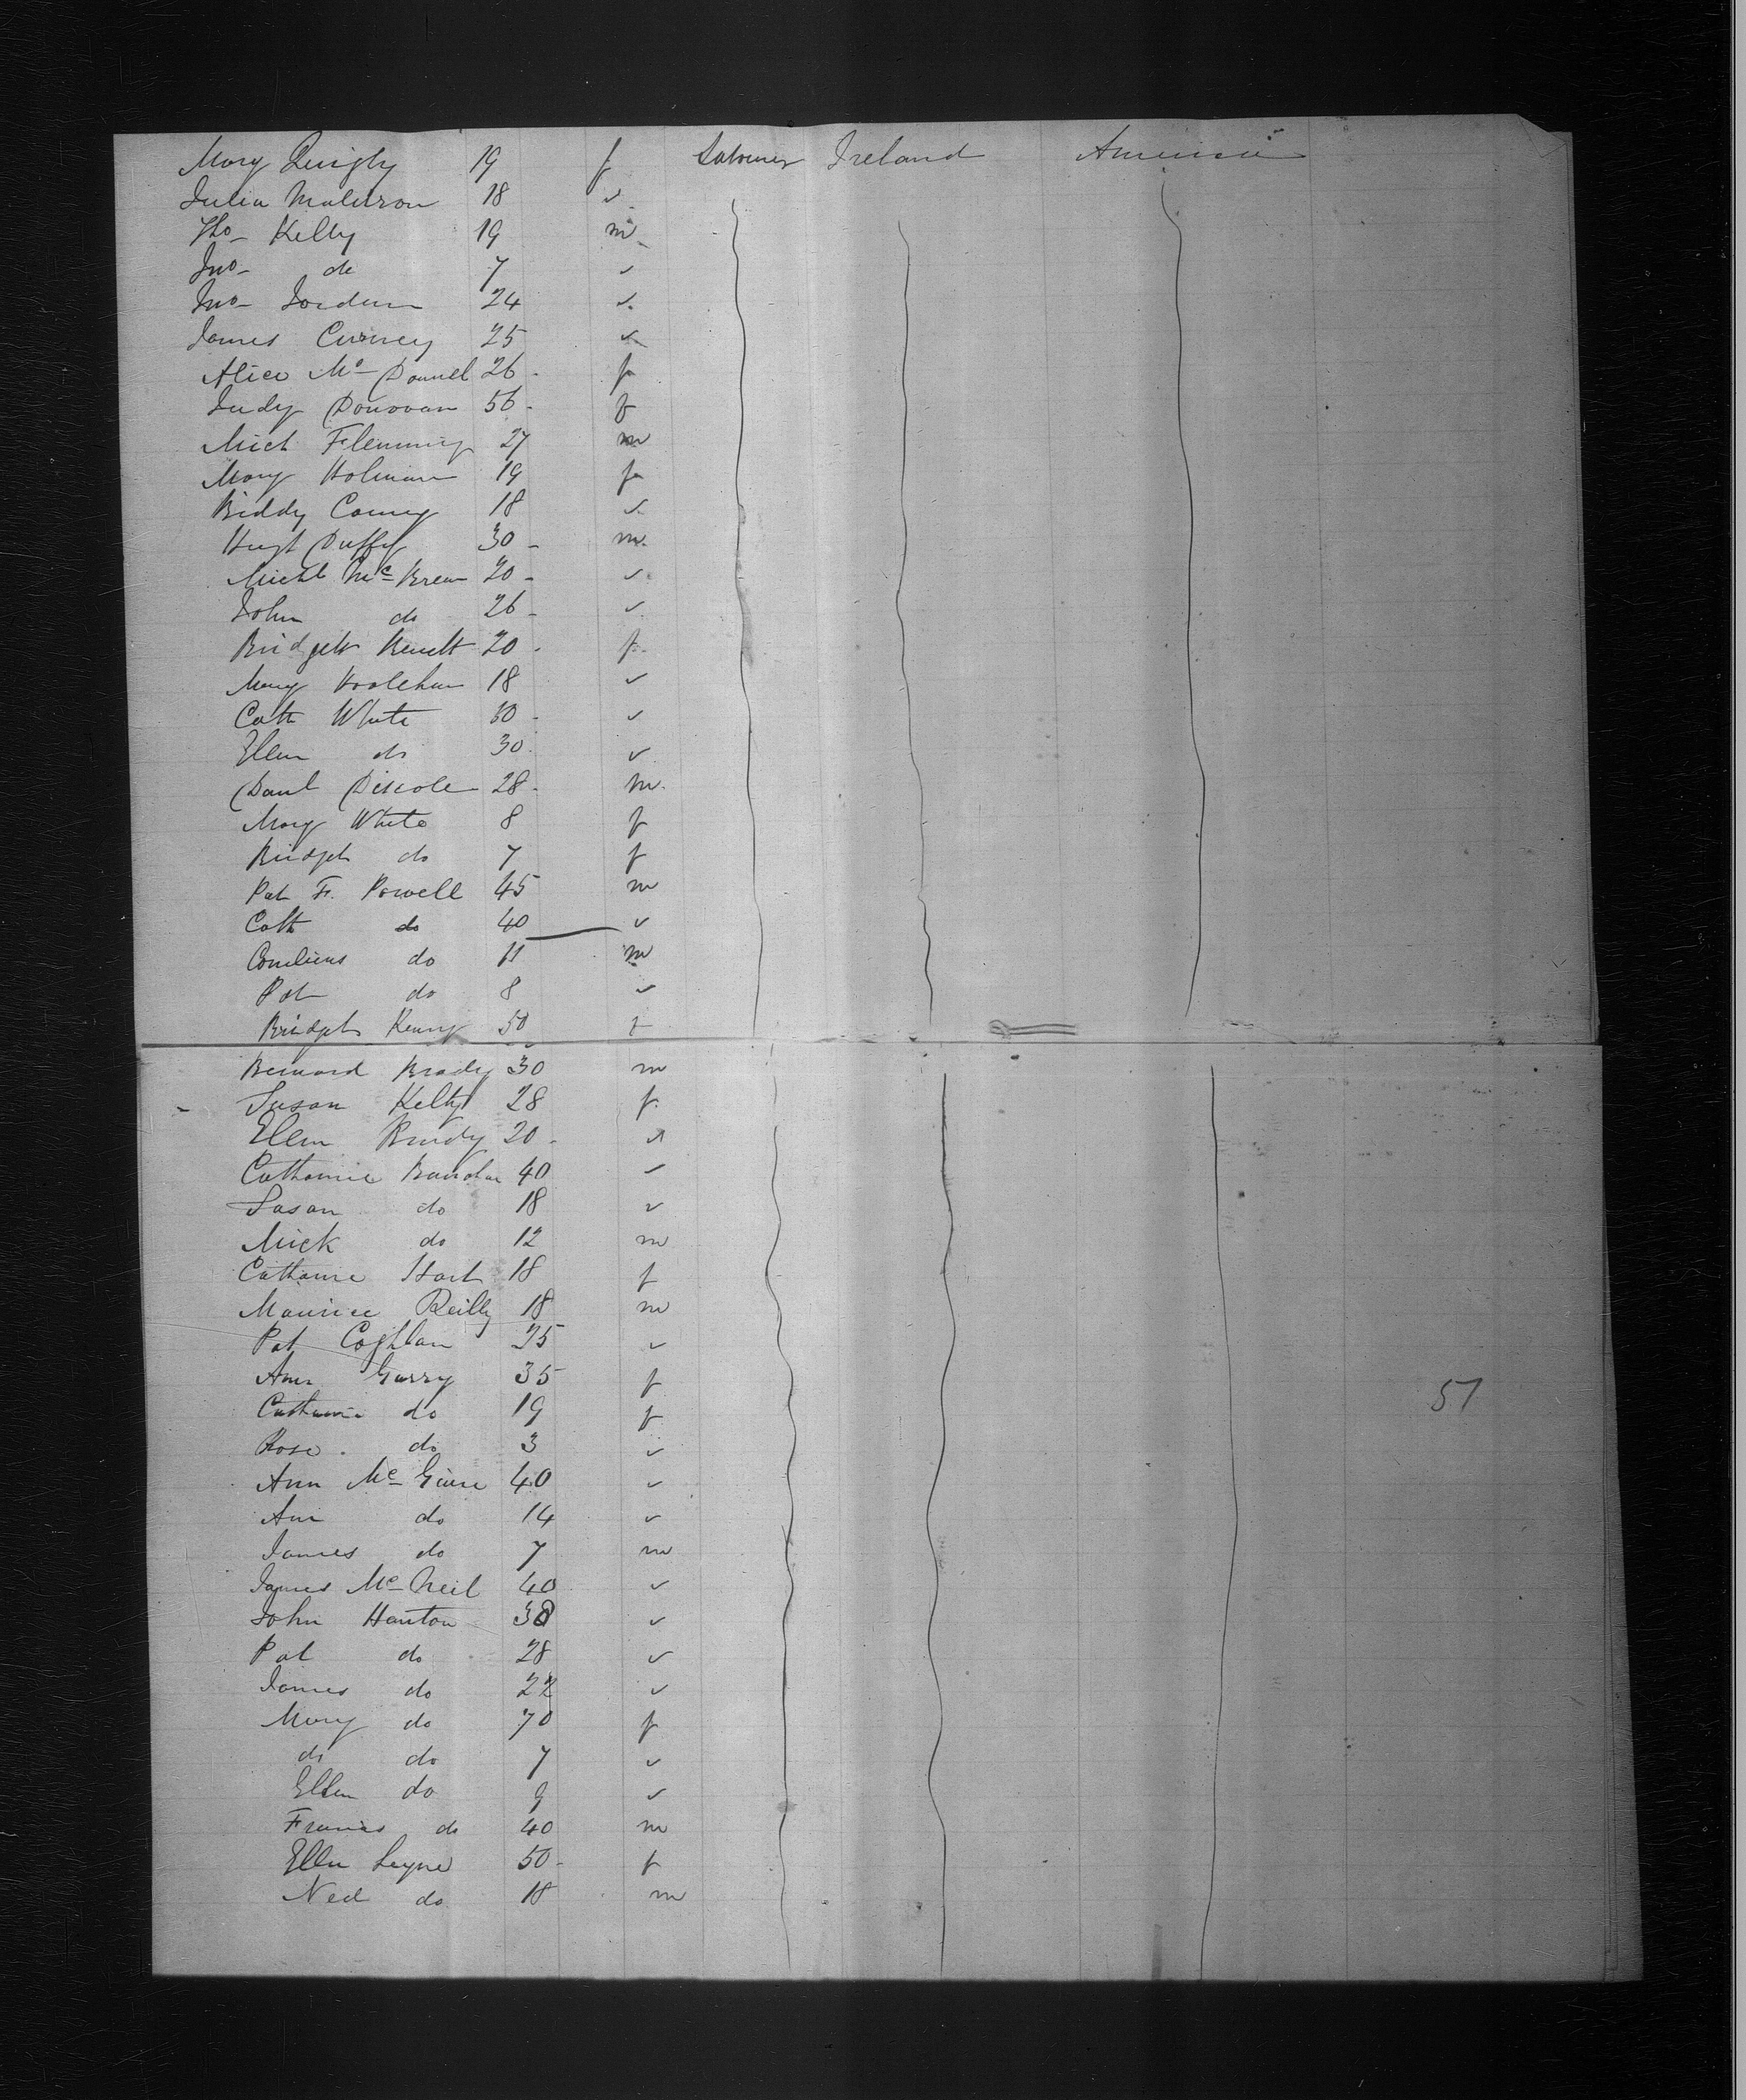 Mary Quigly 19 f Labourer Ireland America
Julia 18 ✓
Tho– Kelly 19 m
Jno– do 7 ✓
Jno– Jordan 24 ✓
James 25 ✓
Alice Mc Donnel 26 - f
Judy Donovan 56 - f
Mich Flemming 27 m
Mary Holman 19 f
Biddy 18 ✓
Hugh Duffy 30 - m
Michl Mc Bren 20 - ✓
John do 26 - ✓
Bridgett 20 - f
Mary Hoolehan 18 ✓
Cath White 30 - ✓
Ellen do 30 ✓
Danl Discole 28 - m
Mary White 8 f
Bridget do 7 f
Pat F. Powell 45 m
Cath do 40 ✓
Cornelius do 11 m
Pat do 8 ✓
Bridget Kenny 50 f
Bernard Brady 30 m
Susan Kelly 28 f
Ellen Brady 20 - ✓
Catharine 40 ✓
Susan do 18 ✓
Mick do 12 m
Catharine Hart 18 f
Maurice Reilly 18 m
Pat Coghlan 25 ✓
Ann Garry 35 f
Catharine do 19 f
Rose do 3 ✓
Ann Mc Guire 40 ✓
Ann do 14 ✓
James do 7 m
James Mc Neil 40 ✓
John Hanton 38 ✓
Pat do 28 ✓
James do 22 ✓
Mary do 70 f
do do 7 ✓
Ellen do 9 ✓
Francis do 40 m
Ellen Leyne 50 - f
Ned do 18 m
51